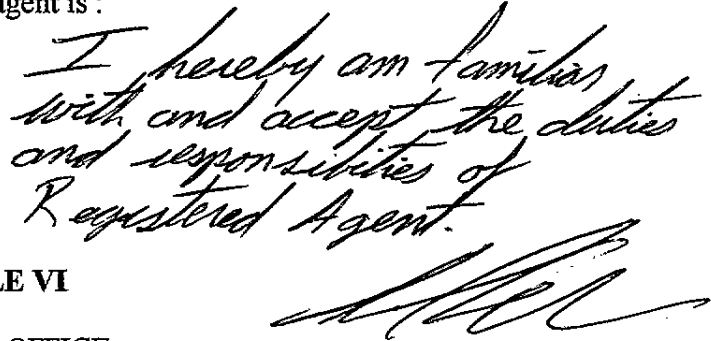 agent is :
I hereby am familiar
with and accept the duties
and responsibilities of
Registered Agent.
LE VI
OFFICE